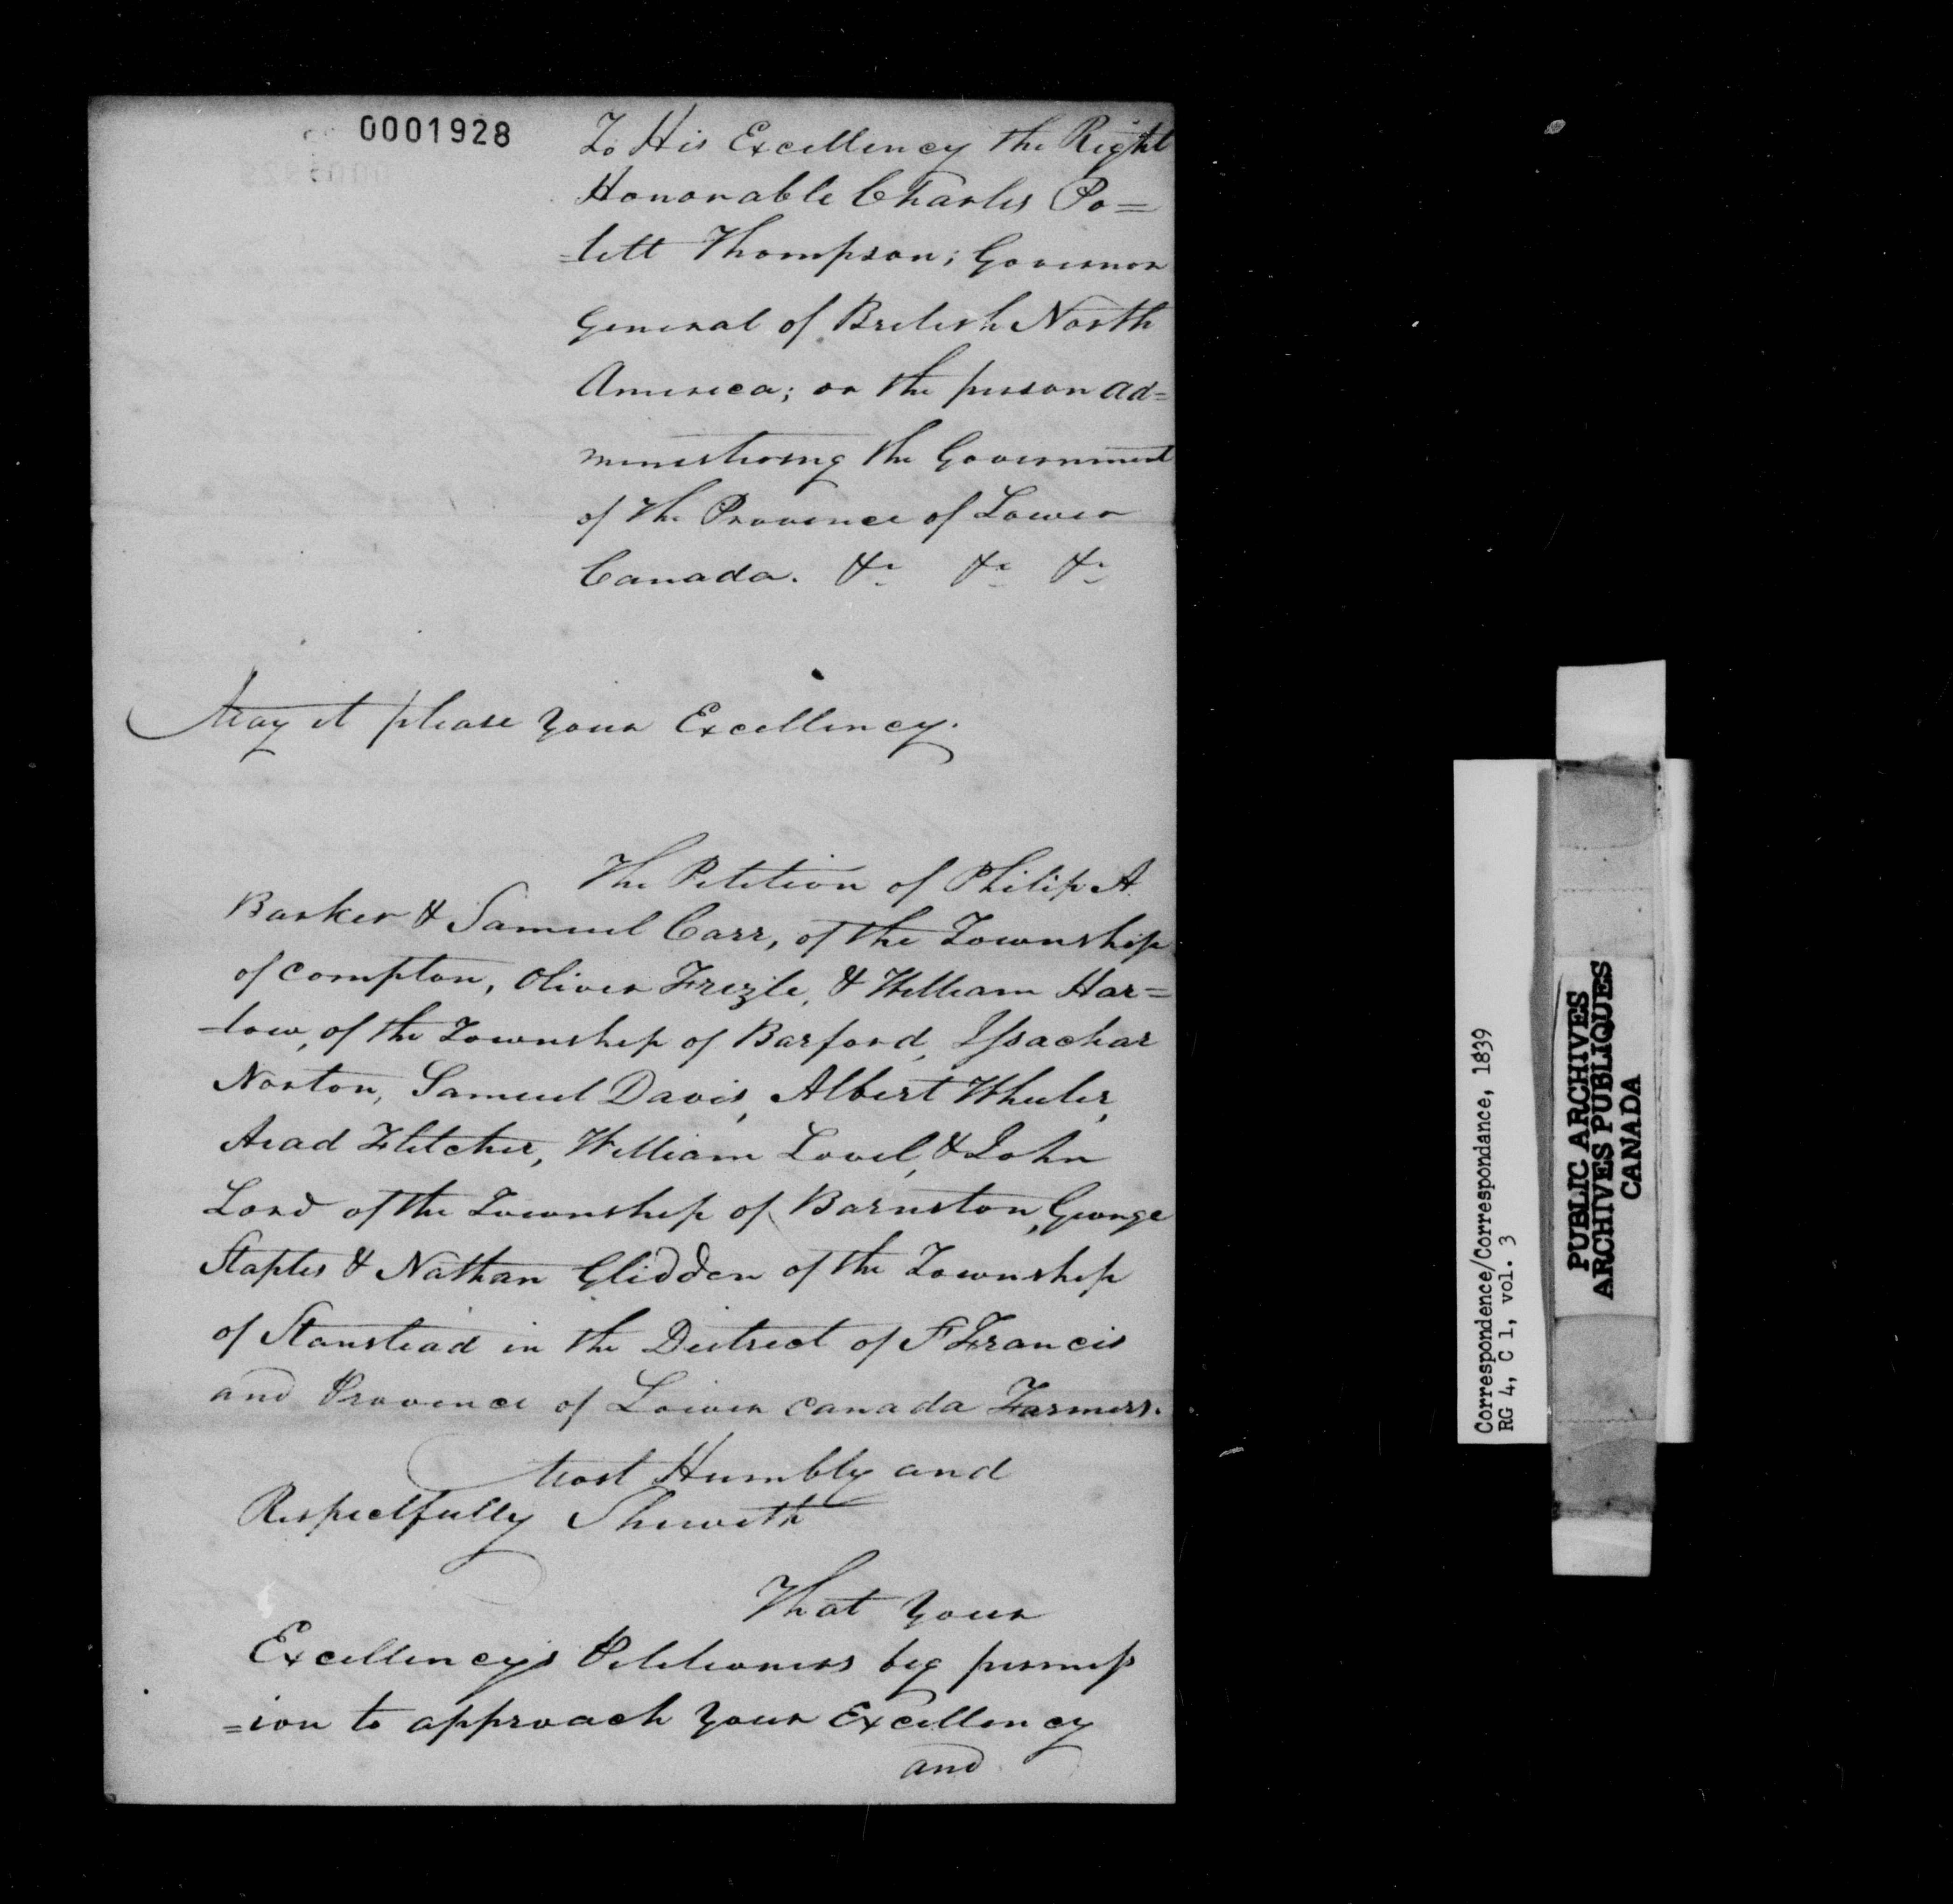 0001928
To His Excellency the Right
Honorable Charles Po=
=lett Thompson; Governor
General of British North
America; or the person ad=
ministering the Government
of the Province of Lower
Canada. &c &c &c
May it please your Excellency.
The Petition of Philip A.
Barker & Samuel Carr, of the Township
of Compton, Oliver Frizle, & William Har=
=low, of the Township of Barford, Issachar
Norton, Samuel Davis, Albert Wheeler,
Arad Fletcher, William Lovel, & John
Lord of the Township of Barnston, George
Staples & Nathan Glidden of the Township
of Stanstead in the District of St Francis
and Province of Lower Canada Farmers.
Most Humbly and
Respectfully Sheweth
That your
Excellency's Petitioners beg permiss
=ion to approach your Excellency
and
Correspondence/Correspondance, 1839
RG 4, C 1, vol. 3
PUBLIC ARCHIVES
ARCHIVES PUBLIQUES
CANADA